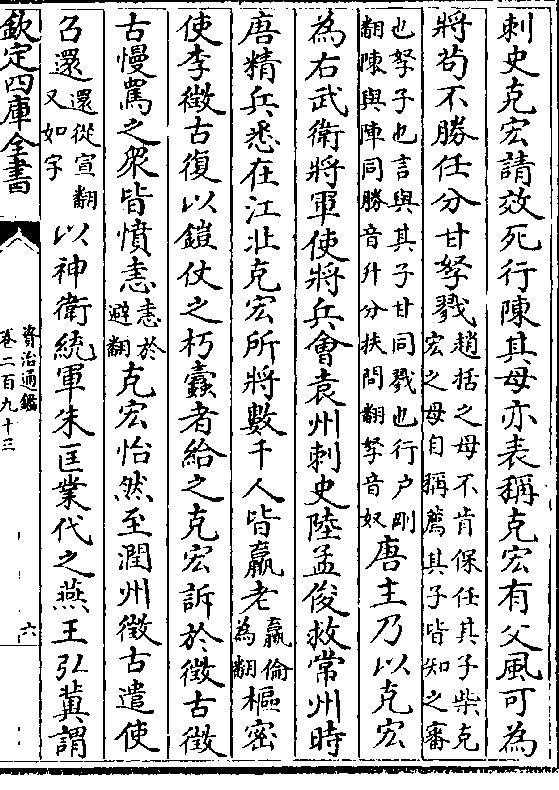 刺史克宏請效死行陳其母亦表稱克宏有父風可為
將茍不勝任分甘孥戮趙括之母不肯保任其子柴克
宏之母自稱薦其子皆知之審
也孥子也言與其子甘同戮也行户剛
翻陳與陣同勝音升分扶問翻孥音奴唐主乃以克宏
為右武衛將軍使將兵會袁州刺史陸孟俊救常州時
唐精兵悉在江北克宏所將數千人皆羸老羸倫
為翻樞密
使李徵古復以鎧仗之朽蠹者給之克宏訴於徵古徵
古慢罵之衆皆憤恚恚於
避翻克宏怡然至潤州徵古遣使
召還還從宣翻
又如字以神衛統軍朱匡業代之燕王弘冀謂
欽定四庫全書
資治通鑑
卷二百九十三
六